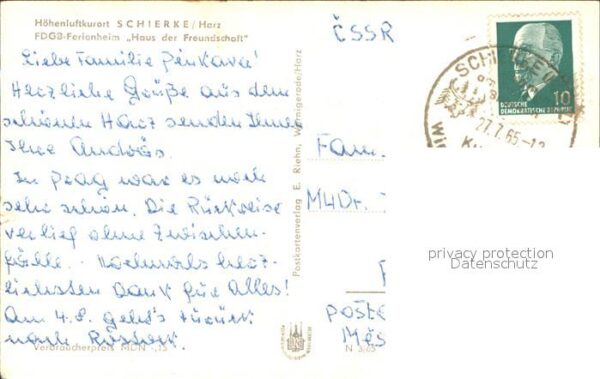 Höhenluftkurort SCHIERKE/Harz
FDGB-Ferienheim „Haus der Freundschaft"
Liebe Familie
Herzliche Grüße aus dem
schönen Harz senden Ihnen
Ihre
In Prag war es noch
sehr schön. Die Rückreise
verlief ohne Zwischen-
fälle. - Nochmals herz-
lichsten Dank für Alles!
Am 4.8. geht's zurück
nach Rostock.
Verbraucherpreis MDN -,15
Postkartenverlag E. Riehn, Wernigerode/Harz
N 3/65
ČSSR
Fam.
MUDr.
DEUTSCHE
DEMOKRATISCHE REPUBLIK
10
27.7.65-12
privacy protection
Datenschutz